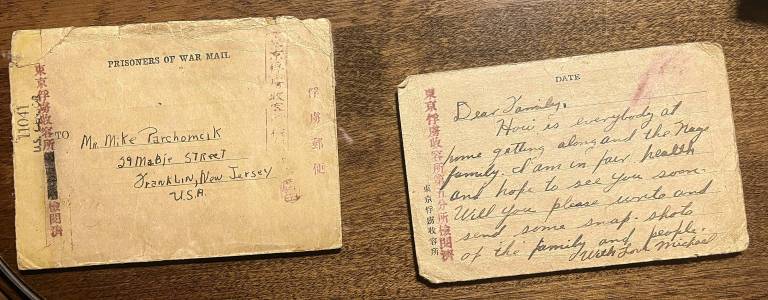 PRISONERS OF WAR MAIL
東京俘虜収容所
検閲済
11041
U.S. CENSOR
俘虜郵便
TO
Mr. Mike Parchomcik
29 Mabie Street
Franklin, New Jersey
U.S.A.
DATE
東京俘虜收容所第
分所檢閲濟
東京俘虜收容所
Dear Family,
How is everybody at
home getting along and the Nage
family. I am in fair health
and hope to see you soon.
Will you please write and
send some snap-shots
of the family and people.
With Love Michael